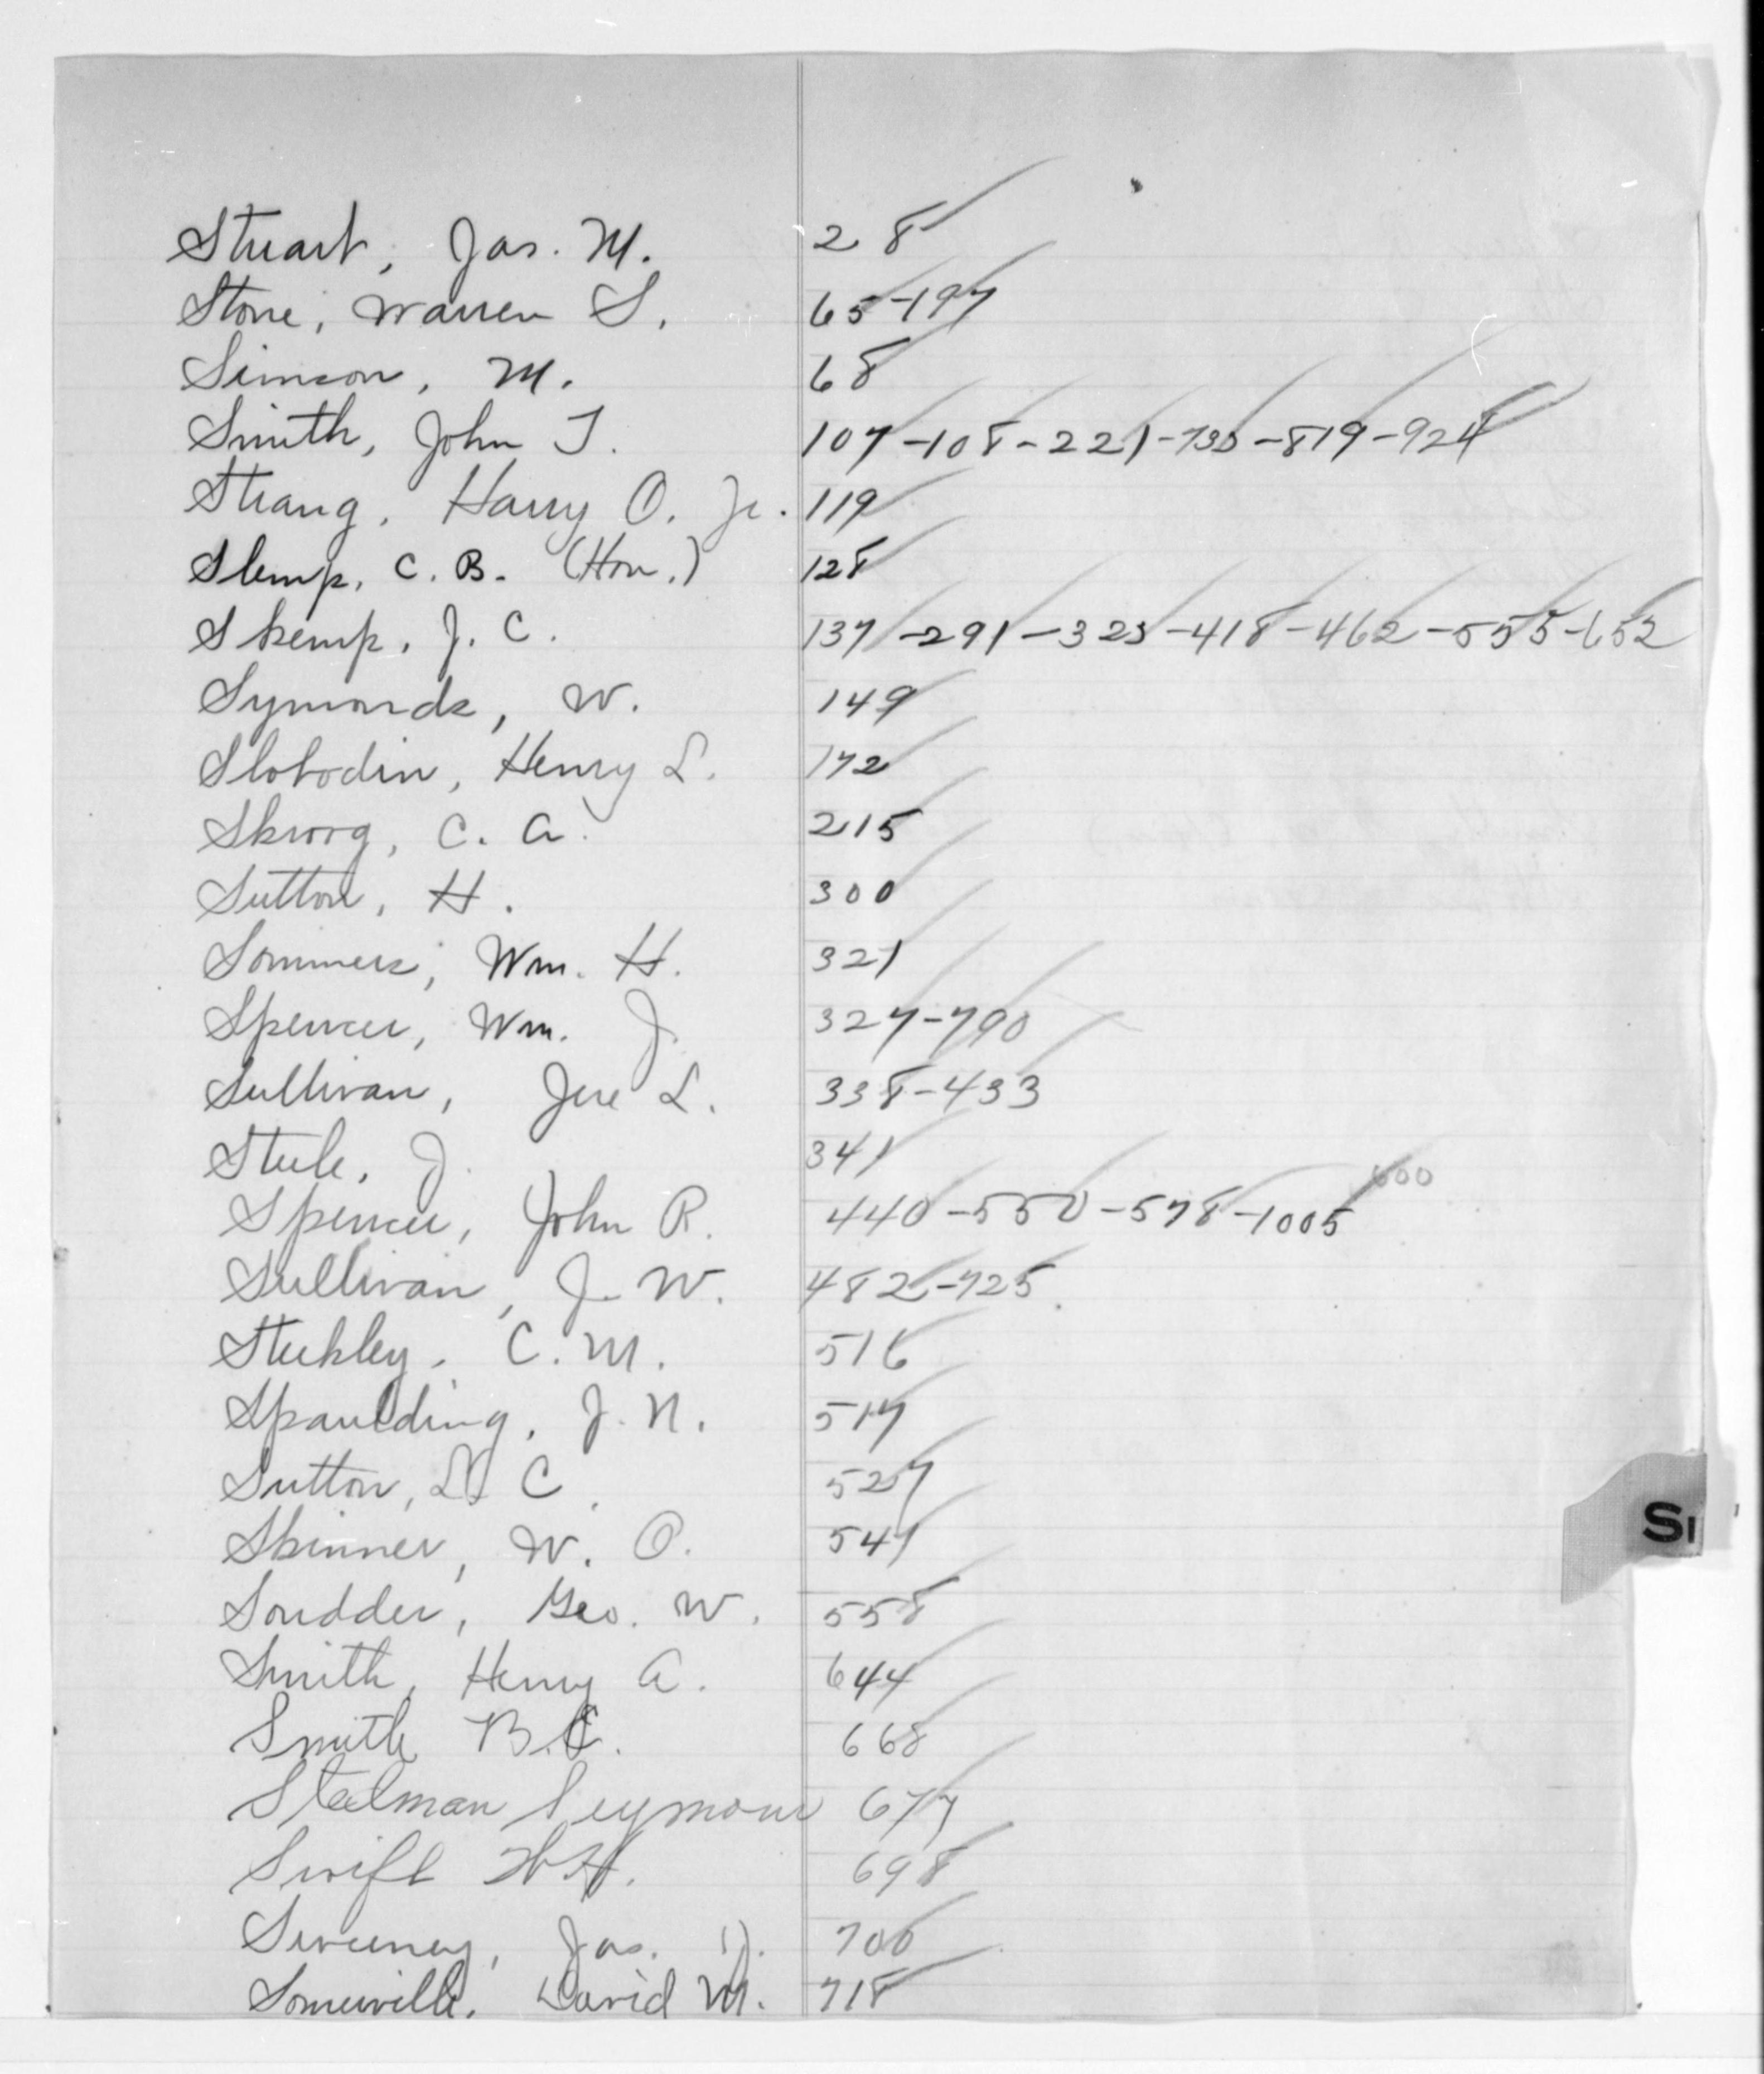 Stuart, Jas. M. 28
Stone, Warren S. 65-197
Simson, M. 68
Smith, John T. 107-108-221-730-819-924
Strang, Harry O. Jr. 119
Slemp, C. B. (Hon.) 128
Skemp, J. C. 137-291-323-418-462-555-652
Symonds, W. 149
Slobodin, Henry L. 172
Skoog, C. A. 215
Sutton, H. 300
Sommers, Wm. H. 321
Spencer, Wm. J. 327-790
Sullivan, Jere L. 338-433
Steele, J. 341
Spencer, John R. 440-550-578-1005 600
Sullivan, J. W. 482-725
Steckley, C. M. 516
Spaulding, J. N. 517
Sutton, C. 527
Skinner, W. O. 541
Scudder, Geo. W. 558
Smith, Henry A. 644
Smith B. 668
Stedman Seymour 677
Swift W. H. 698
Sweeney, Jas. D. 700
Somerville, David M. 718
Si